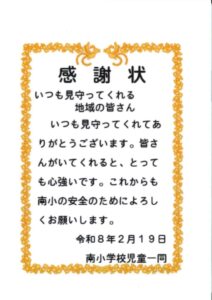 感謝状
いつも見守ってくれる
地域の皆さん
いつも見守ってくれてあ
りがとうございます。皆さ
んがいてくれると、とって
も心強いです。これからも
南小の安全のためによろし
くお願いします。
令和８年２月１９日
南小学校児童一同